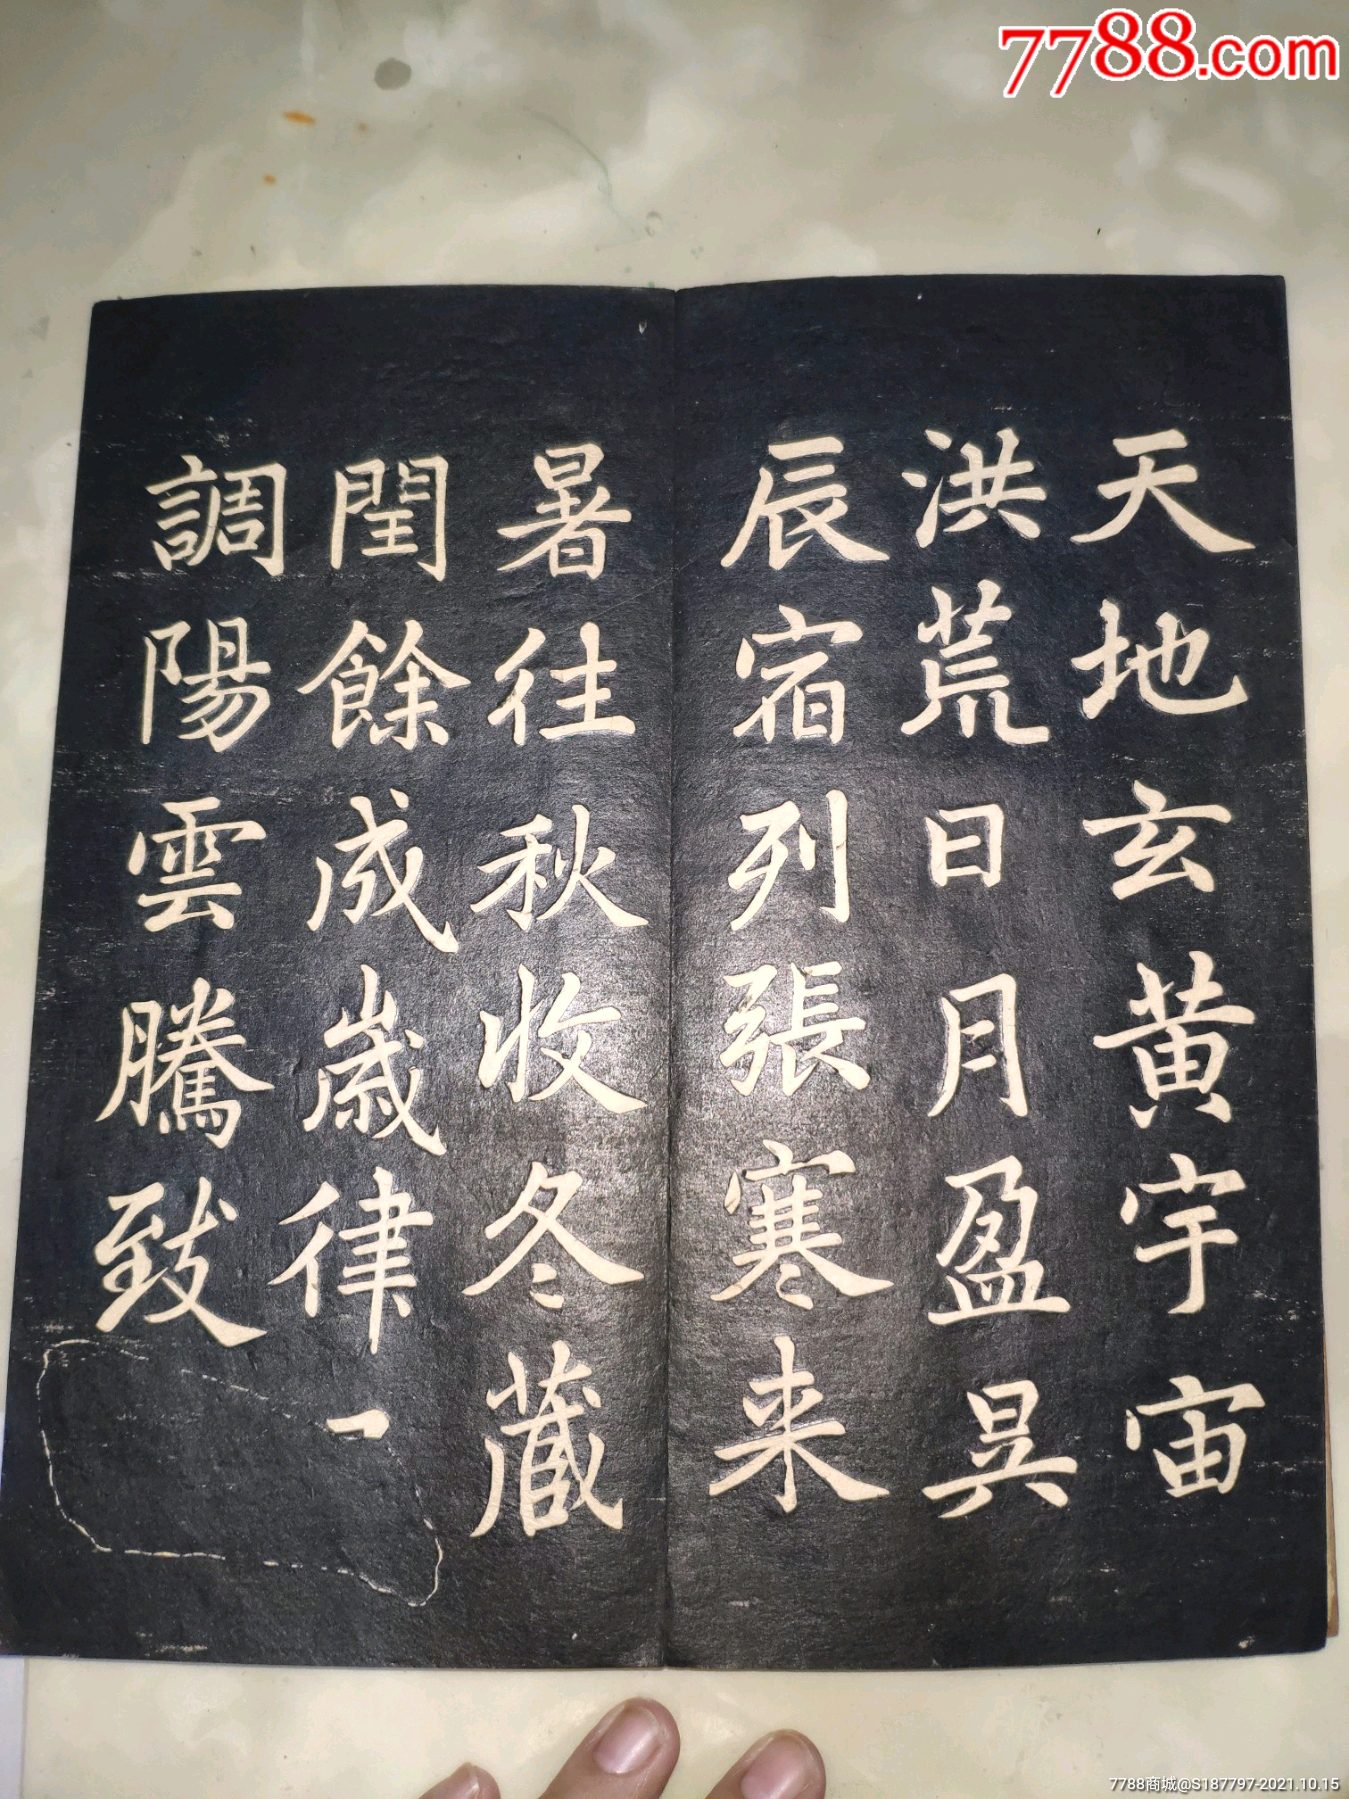 7788.com
天地玄黄宇宙
洪荒日月盈昃
辰宿列張寒来
暑往秋收冬藏
閏餘成歲律
調陽雲騰致
7788商城@S187797-2021.10.15